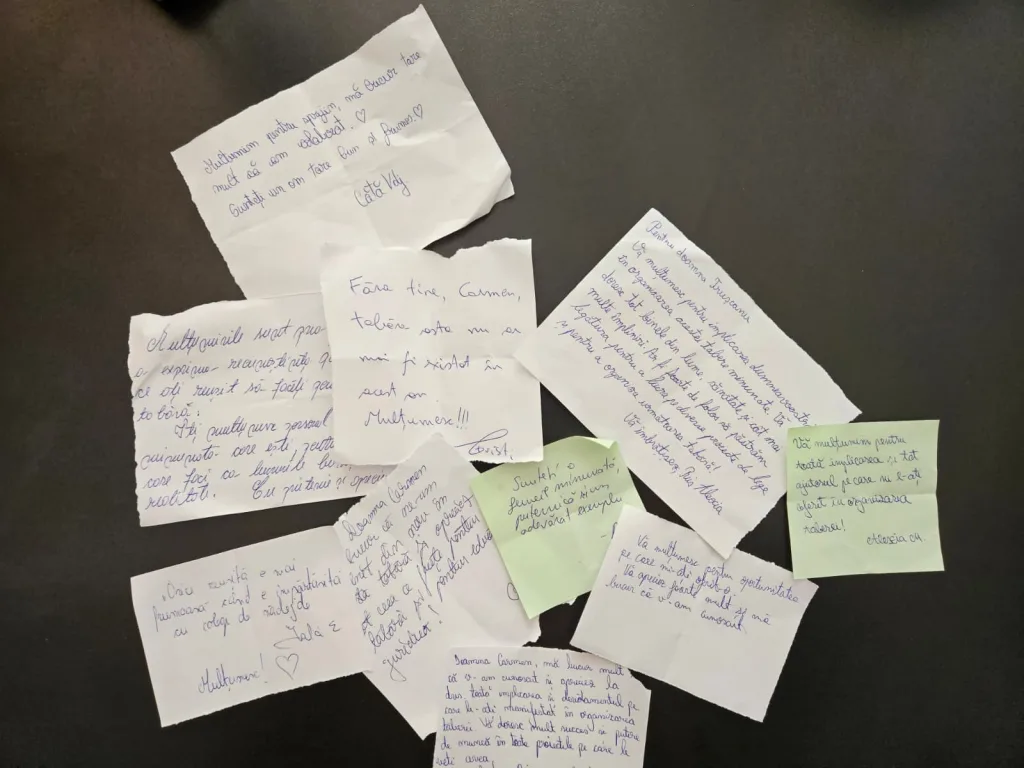 Mulțumim pentru sprijin, mă bucur tare
mult că am colaborat. ♡
Sunteți un om tare bun și frumos.♡
Cătă Vdj
Fără tine, Carmen,
tabăra asta nu ar
mai fi existat în
acest an
Mulțumesc!!!
Cristi
Mulțumirile sunt
a exprima recunoștința
ce ați reușit să faceți
tabără.
Îți mulțumesc personal
care este
care faci ca lucrurile
realitate. Cu prietenie și
Pentru doamna Trușcanu
Vă mulțumesc pentru implicarea dumneavoastră
în organizarea acestei tabere minunate. Vă
doresc tot binele din lume, sănătate și cât mai
multe împliniri. Ar fi foarte de folos să păstrăm
legătura pentru a lua și diverse proiecte de lege
și pentru a organiza următoarea tabără!
Vă îmbrățișez, Alexia
Sunteți o
femeie minunată,
puternică și un
adevărat exemplu
Vă mulțumim pentru
toată implicarea și tot
ajutorul pe care ni l-ați
oferit în organizarea
taberei!
Alexia M.
Vă mulțumesc pentru oportunitatea
pe care mi-ați oferit-o.
Vă apreciez foarte mult și mă
bucur că v-am cunoscut.
reușită e mai
frumoasă când e împărtășită
cu colegi de nădejde
Mulțumesc! ♡
Doamna Carmen
bucur că ne-am
din nou în
tabără și apreciez
tot ceea ce faceți pentru
tabără și pentru
juridică!
Doamna Carmen, mă bucur mult
că v-am cunoscut și apreciez la
dvs. toată implicarea și devotamentul pe
care le-ați manifestat în organizarea
taberei. Vă doresc mult succes și putere
de muncă în toate proiectele pe care le
veți avea.